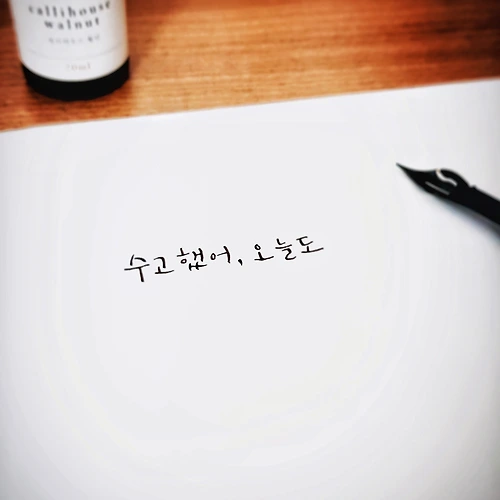 callihouse
walnut
수고했어, 오늘도